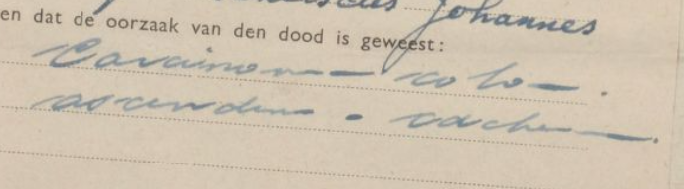 Johannes
en dat de oorzaak van den dood is geweest:
Carcinom colo
ascendens - cachex